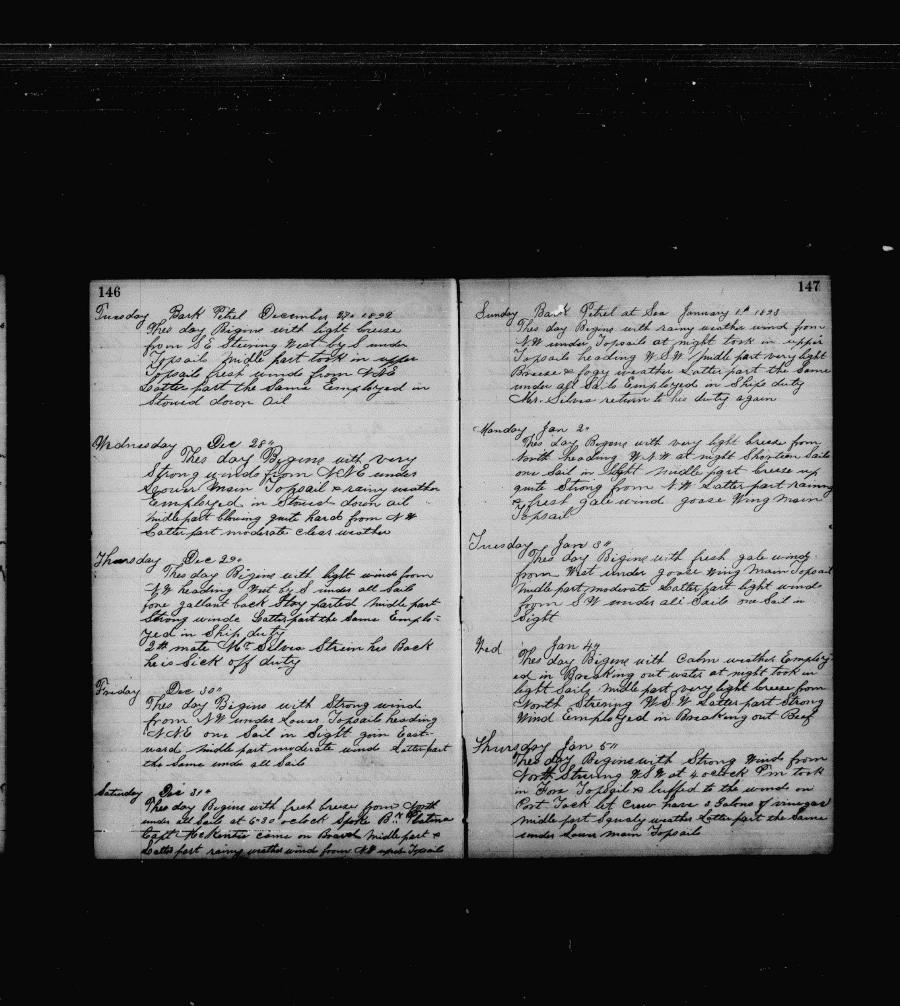 146
Tuesday Bark Petrel December 27" 1892
Thes day Bigins with light breese
from S E Steering West by S under
Topsails midle part took in upper
Topsails fresp winds from NNE
Latter part the Same Employed in
Stowed down oil
Wednesday Dec 28"
Thes day Begins with very
Strong winds from NNE under
Lower Main Topsail & rainy weather
Employed in Stowed down oil
midle part blowing quite hard from NW
Latter part moderate clear weather
Thursday Dec 29"
Thes day Bigins with light winds from
NW heading West by S under all Sails
fore gallant back Stay parted midle part
Strong winds Latter part the Same Emplo=
yed in Ship duty
2th mate Mr Silvia Strein hes Back
he is Sick off duty
Friday Dec 30"
Thes day Bigins with Strong wind
from NW under Lower Topsails heading
NNE one Sail in Sight goin East-
ward midle part moderate winds Latter part
the Same unde all Sails
Saturday Dec 31"
Thes day Begins with fresh breese from North
under all Sails at 6-30 oclock Spoke Bk Platina
Capt McKensie come on Board midle part &
Latter part rainy weather wind from NW uper Topsails
147
Sunday Bark Petrel at Sea January 1st 1893
Thes day Begins with rainy weather wind from
NW under Topsails at night took in upper
Topsails heading W.S.W. midle part very light
Breese & fogy weather Latter part the Same
under all Sails Employed in Ships duty
Mr. Silvia return to his duty again
Monday Jan 2"
Thes day Begins with very light breese from
North heading W.N.W at night Shorteen Sails
one Sail in Sight midle part breese up
quite Strong from NW Latter part raining
& fresh gale wind goose Wing main
Topsail
Tuesday Jan 3"
Thes day Bigins with fresh gale winds
from West under goose Wing Main Topsail
midle part moderate Latter part light winds
from SW under all Sails one Sail in
Sight
Wed Jan 4"
Thes day Bigins with Calm weather Employ-
ed in Breaking out water at night took in
light Sails midle part very light breese from
North Steering W.S.W Latter part Strong
Wind Employed in Breaking out Beef
Thursday Jan 5"
Thes day Begins with Strong Winds from
North Steering WSW at 4 oclock P.m took
in Fore Topsgil & luffed to the winds on
Port Tack let Crew have 3 Galons of vinegar
midle part Squaly weather Latter part the Same
under Lower main Topsails